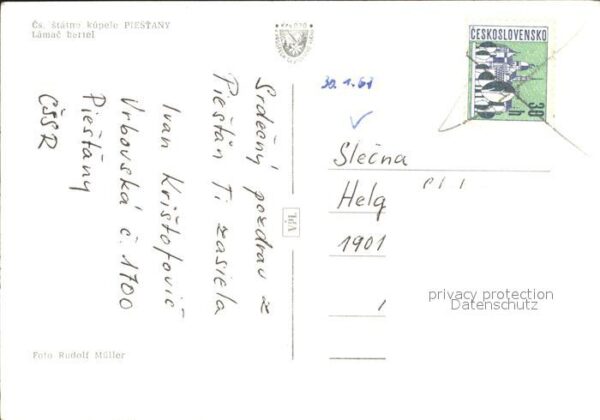 Čs. štátne kúpele PIEŠŤANY
Lámač bariel
Srdečný pozdrav z
Piešťan Ti zasiela
Ivan Krištofovič
Vrbovská č. 1700
Piešťany
ČSSR
Foto Rudolf Müller
30.1.67
ČESKOSLOVENSKO
30
h
Slečna
Helg
1901
privacy protection
Datenschutz